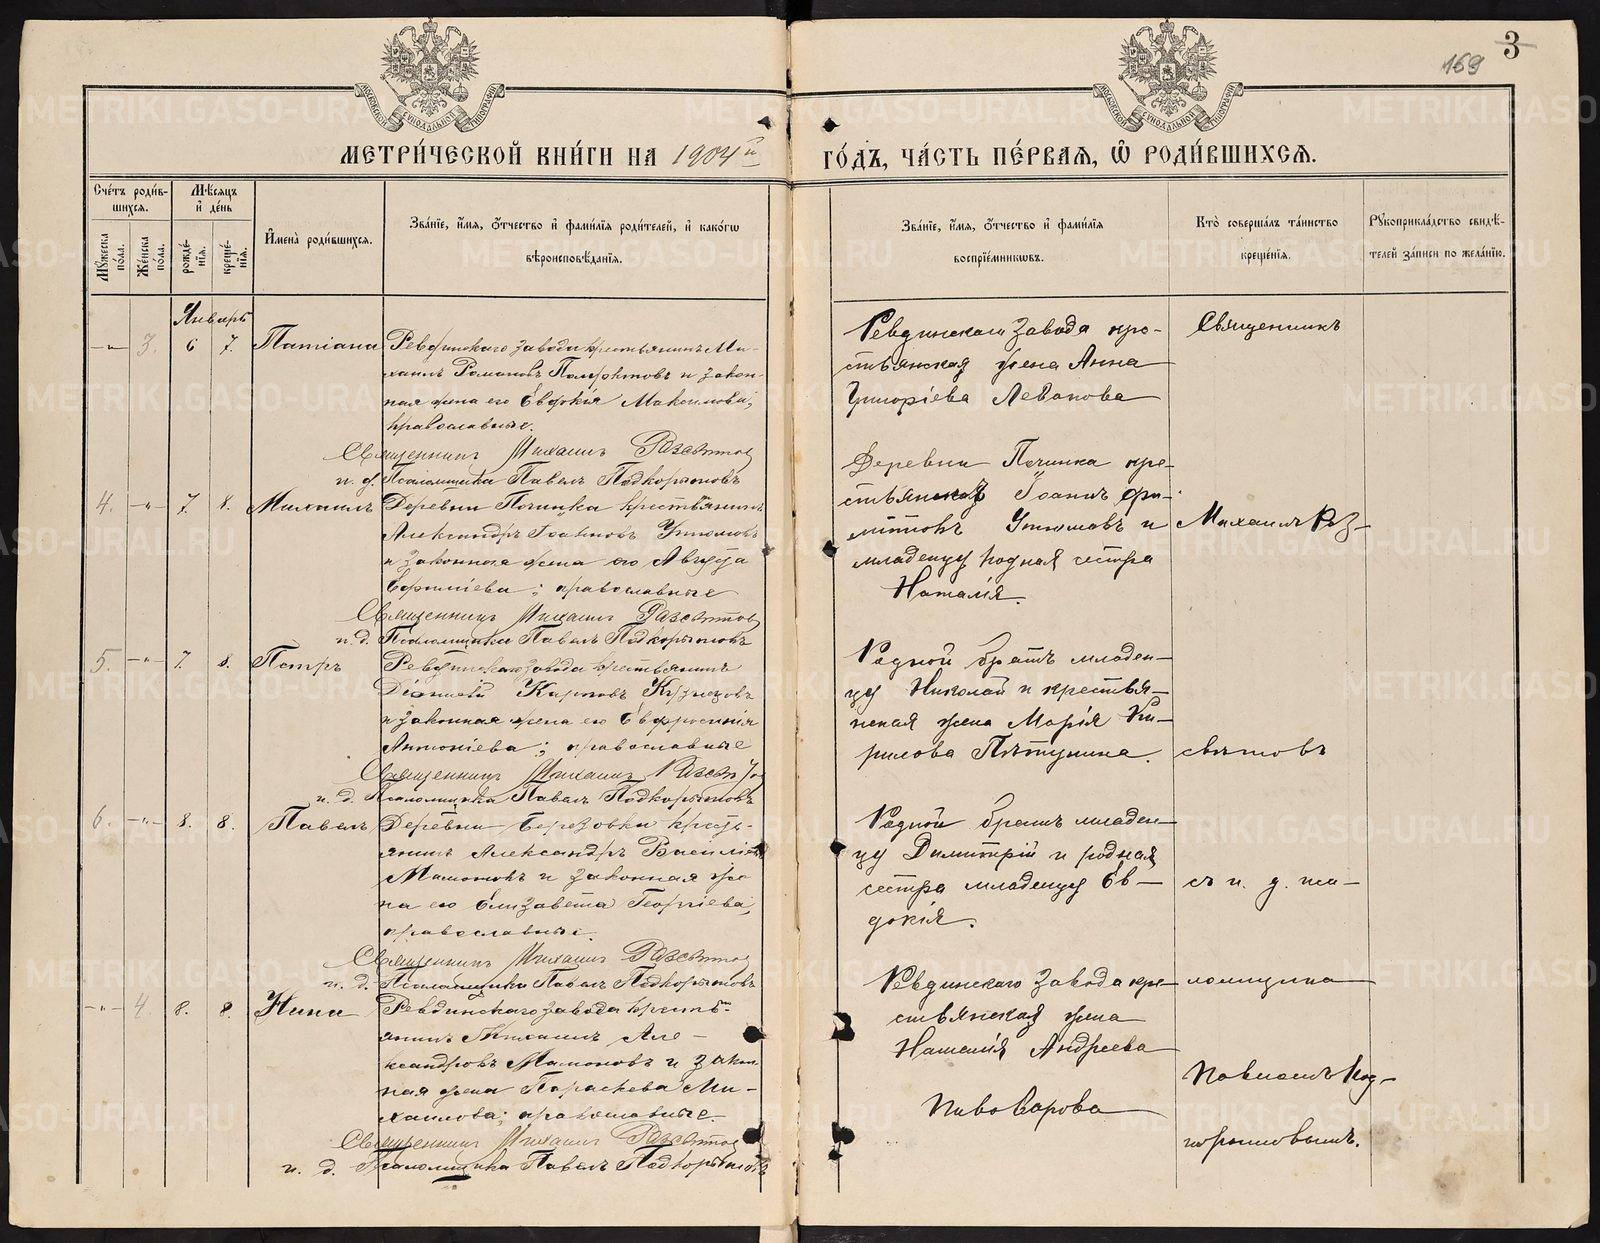 169 3
МЕТРИ́ЧЕСКОЙ КНИ́ГИ НА 1904й ГО́ДЪ, ЧА́СТЬ ПЕ́РВАЯ, Ѡ҆ РОДИ́ВШИХСѦ.
Сче́тъ роди́в-
шихся.
Мꙋ́жеска по́ла.
Же́нска по́ла.
Мѣ́сяцъ
и҆ де́нь
рожде́-
нїѧ.
креще́-
нїѧ.
И҆мена̀ роди́вшихсѧ.
Зва́нїе, и҆́мѧ, ѻ҆́тчество и҆ фами́лїѧ роди́телей, и҆ како́гѡ
вѣроисповѣ́данїѧ.
Зва́нїе, и҆́мѧ, ѻ҆́тчество и҆ фами́лїѧ
воспрїе́мниковъ.
Кто̀ соверша́лъ та́инство
креще́нїѧ.
Рꙋкоприкла́дство свидѣ́-
телей за́писи по жела́нїю.
Январь
-"- 3. 6 7. Татіана
Ревдинскаго завода крестьянинъ Ми-
хаилъ Романовъ и закон-
ная жена его Евдокія Максимова;
православные.
Священникъ Михаилъ Разсвѣтов
и. д. Псаломщика Павелъ Подкорытовъ
Ревдинскаго завода кре-
стьянская жена Анна
Григоріева Левакова
Священникъ
4. -"- 7. 8. Михаилъ
Деревни Починка крестьянинъ
Александръ Іоанновъ Утюмовъ
и законная жена его Августа
Евфиміева; православные
Священникъ Михаилъ Разсвѣтов
и. д. Псаломщика Павелъ Подкорытовъ
Деревни Починка кре-
Іоаннъ
Утюмовъ и
младенцу родная сестра
Наталія.
Михаилъ Раз-
5. -"- 7. 8. Петръ
Ревдинскаго завода крестьянинъ
Діонисій Карповъ Кузнецовъ
и законная жена его Евфросинія
Антоніева; православные
Священникъ Михаилъ Разсвѣтов
и. д. Псаломщика Павелъ Подкорытовъ
Родной братъ младен-
цу Николай и крестья-
нская жена Марія Ки-
рилова Пѣтунина.
свѣтовъ
6. -"- 8. 8. Павелъ
Деревни Березовки кресть-
янинъ Александръ Василіевъ
Мамоновъ и законная же-
на его Елизавета Георгіева;
православные.
Священникъ Михаилъ Разсвѣтов
и. д. Псаломщика Павелъ Подкорытовъ
Родной братъ младен-
цу Димитрій и родная
сестра младенцу Ев-
докія.
съ и. д. пса-
-"- 4. 8. 8. Нина
Ревдинскаго завода кресть-
янинъ Михаилъ Але-
ксандровъ Мамоновъ и закон-
ная жена Параскева Ми-
хаилова; православные.
Священникъ Михаилъ Разсвѣтов
и. д. Псаломщика Павелъ Подкорытовъ
Ревдинскаго завода кре-
стьянская жена
Наталія Андреева
Пивоварова
ломщика
Павломъ Под-
корытовымъ.